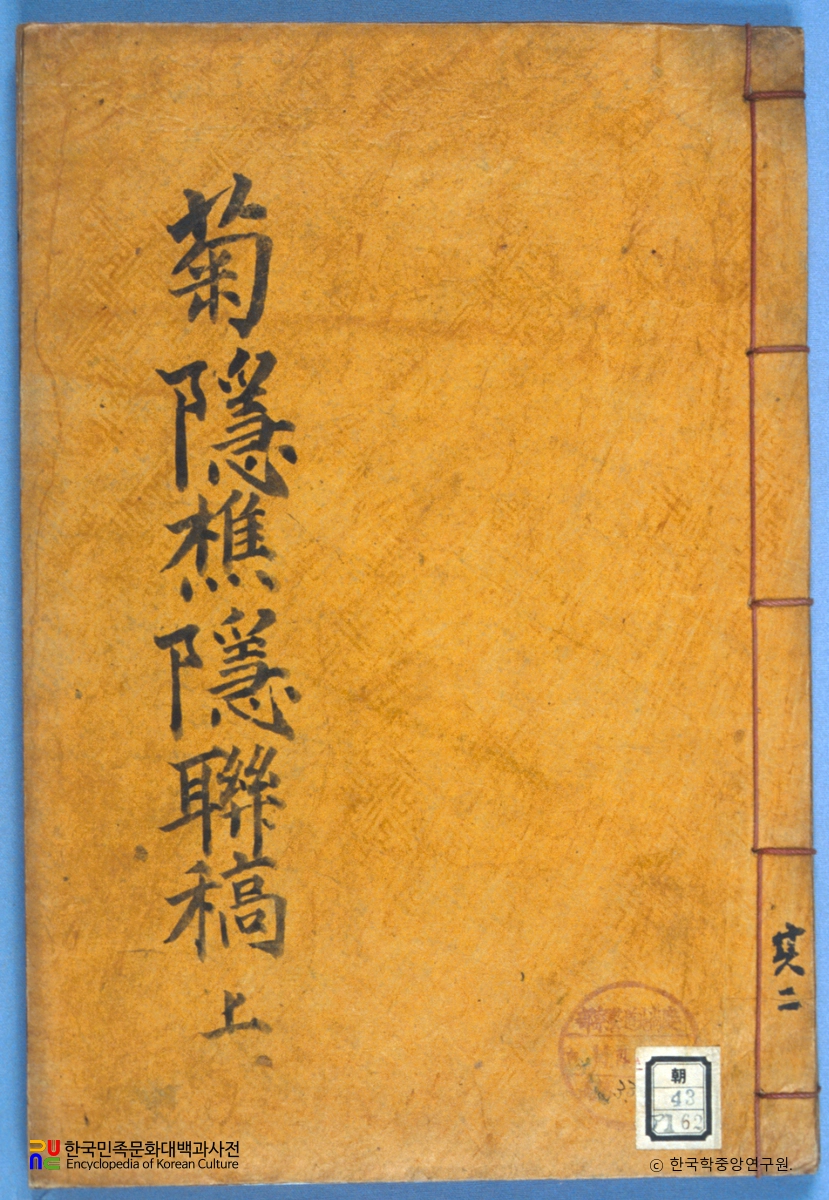 菊隱樵隱聯稿 上
共二
朝
43
62
한국민족문화대백과사전
Encyclopedia of Korean Culture
© 한국학중앙연구원.